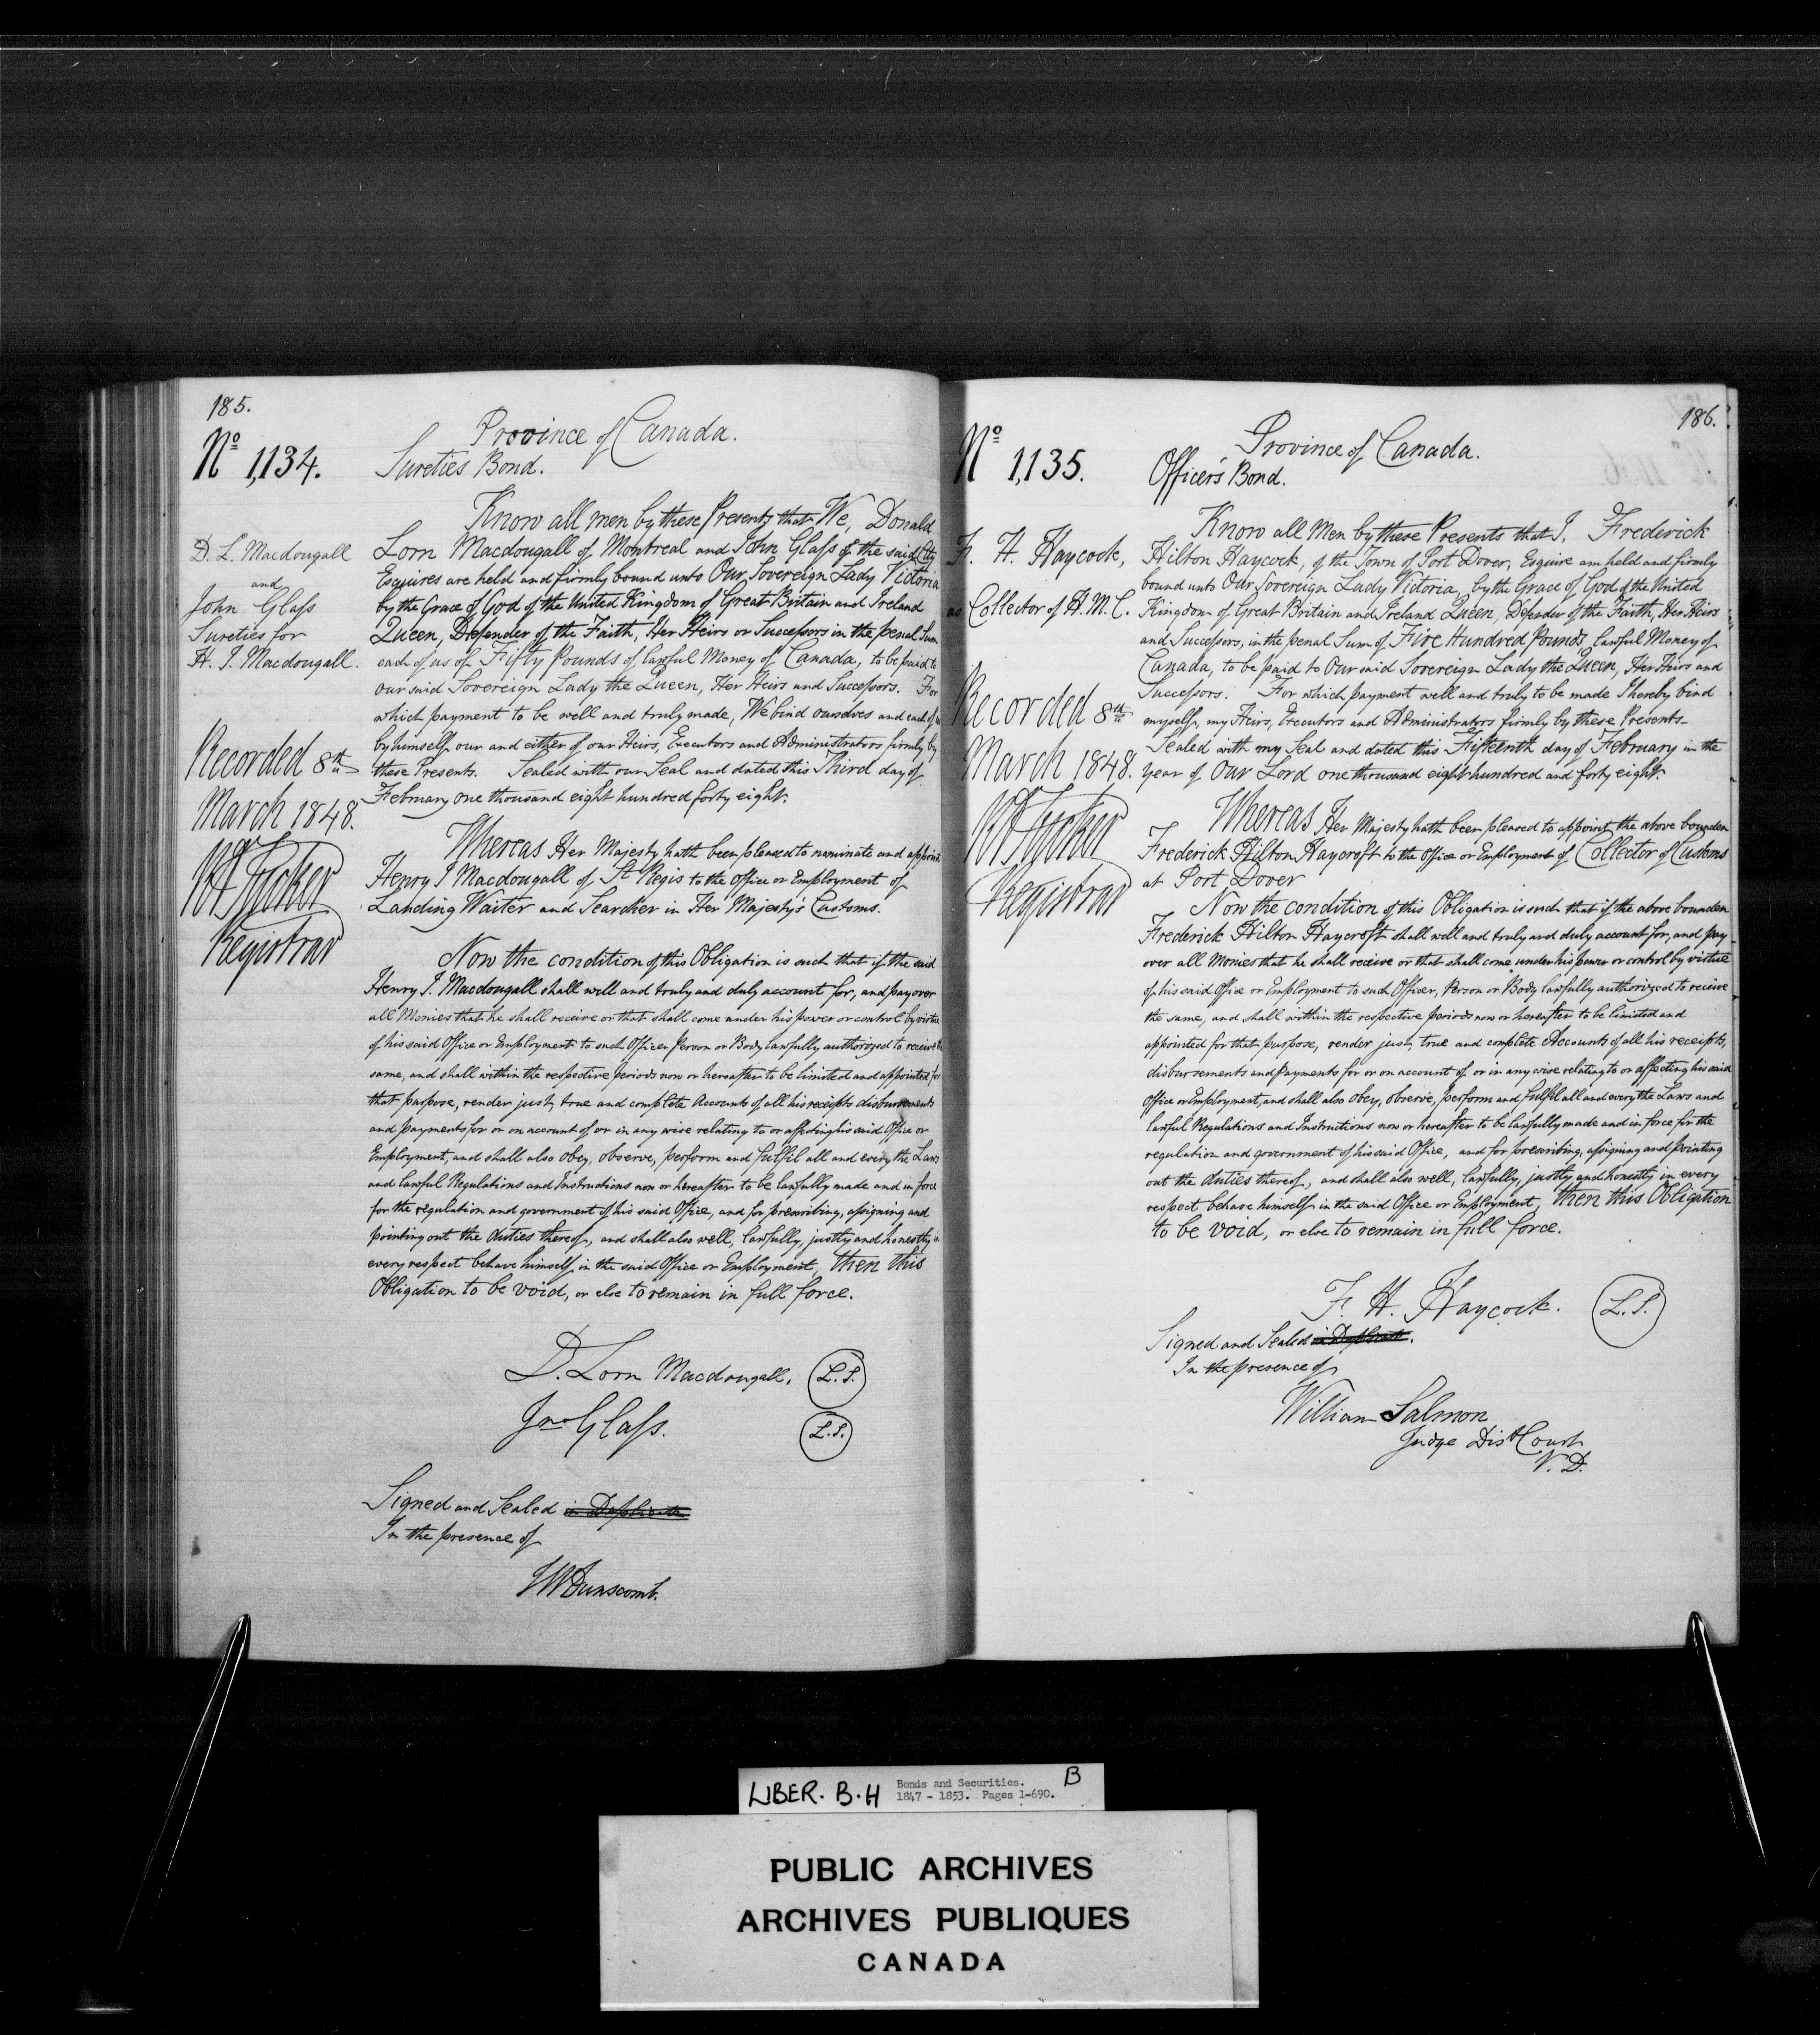 185.
Province of Canada.
No 1,134.
Sureties Bond.
D. L. Macdougall
and
John Glass
Sureties for
H. I. Macdougall.
Recorded 8th
March 1848.
Registrar
Know all men by these Presents that We, Donald
Lorn Macdougall of Montreal and John Glass of the said City
Esquires are held and firmly bound unto Our Sovereign Lady Victoria
by the Grace of God of the United Kingdom of Great Britain and Ireland
Queen, Defender of the Faith, Her Heirs or Successors in the penal Sum
each of us of Fifty Pounds of lawful Money of Canada, to be paid to
our said Sovereign Lady the Queen, Her Heirs and Successors. For
which payment to be well and truly made, We bind ourselves and each of us
by himself our and either of our Heirs, Executors and Administrators firmly by
these Presents. Sealed with our Seal and dated this Third day of
February one thousand eight hundred forty eight.
Whereas Her Majesty hath been pleased to nominate and appoint
Henry I Macdougall of St Regis to the office or Employment of
Landing Waiter and Searcher in Her Majesty's Customs.
Now the condition of this Obligation is such that if the said
Henry I. Macdougall shall well and truly and duly account for, and pay over
all Monies that he shall receive or that shall come under his power or control by virtue
of his said Office or Employment to such Officer Person or Body lawfully authorized to receive the
same, and shall within the respective periods now or hereafter to be limited and appointed for
that purpose, render just, true and complete Accounts of all his receipts disbursements
and payments for or on account of or in any wise relating to or affecting his said Office or
Employment, and shall also obey, observe, perform and fulfil all and every the Laws
and lawful Regulations and Instructions now or hereafter to be lawfully made and in force
for the regulation and government of his said Office, and for prescribing, assigning and
pointing out the duties thereof, and shall also well, lawfully, justly and honestly in
every respect behave himself in the said Office or Employment, then this
Obligation to be void, or else to remain in full force.
D. Lorn Macdougall. L.S.
Jno Glass. L.S.
Signed and Sealed in Duplicate
In the presence of
JW Dunscomb.
186.
Province of Canada.
No 1,135.
Officer's Bond.
F. H. Haycock,
as Collector of H. M. C.
Recorded 8th
March 1848.
Registrar
Know all Men by these Presents that I. Frederick
Hilton Haycock, of the Town of Port Dover, Esquire am held and firmly
bound unto Our Sovereign Lady Victoria, by the Grace of God of the United
Kingdom of Great Britain and Ireland Queen, Defender of the Faith, Her Heirs
and Successors, in the penal Sum of Five Hundred Pounds, lawful Money of
Canada, to be paid to Our said Sovereign Lady the Queen, Her Heirs and
Successors. For which payment well and truly to be made I hereby bind
myself, my Heirs, Executors and Administrators firmly by these Presents-
Sealed with my Seal and dated this Fifteenth day of February in the
year of Our Lord one thousand eight hundred and forty eight.
Whereas Her Majesty hath been pleased to appoint the above bounden
Frederick Hilton Haycroft to the office or Employment of Collector of Customs
at Port Dover
Now the condition of this Obligation is such that if the above bounden
Frederick Hilton Haycroft shall well and truly and duly account for, and pay
over all Monies that he shall receive or that shall come under his power or control by virtue
of his said Office or Employment to such Officer, Person or Body lawfully authorized to receive
the same, and shall within the respective periods now or hereafter to be limited and
appointed for that purpose, render just, true and complete Accounts of all his receipts,
disbursements and payments for or on account of or in any wise relating to or affecting his said
Office or Employment, and shall also obey, observe, perform and fulfil all and every the Laws and
lawful Regulations and Instructions now or hereafter to be lawfully made and in force for the
regulation and government of his said Office, and for prescribing, assigning and pointing
out the duties thereof, and shall also well, lawfully, justly and honestly in every
respect behave himself in the said Office or Employment, then this Obligation
to be void, or else to remain in full force.
F. H. Haycock. L.S.
Signed and Sealed in Duplicate.
In the presence of
William Salmon
Judge Dist Court
N. D.
LIBER. B.H Bonds and Securities. B
1847 - 1853. Pages 1-690.
PUBLIC ARCHIVES
ARCHIVES PUBLIQUES
CANADA